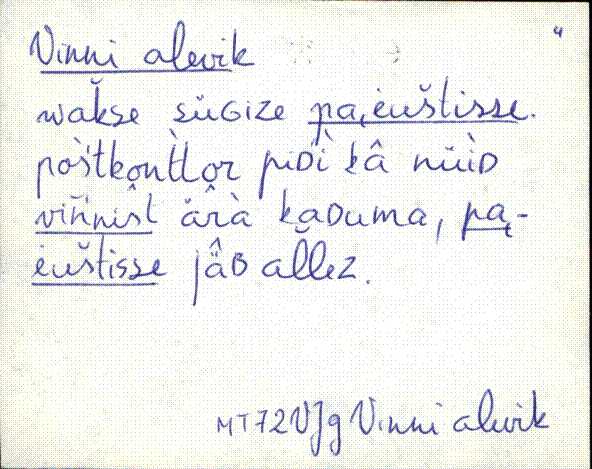 Vinni alevik
wăkse sŭGize pa̧i̯eŭštisse.
pòs̀tkon̂t̀tor pịDÌ kâ nŭìD
viňnîst ärà kaDuma, pa̧-
i̯eušt̀isse jä̂B alĺez.
MT72 VJg Vinni alevik